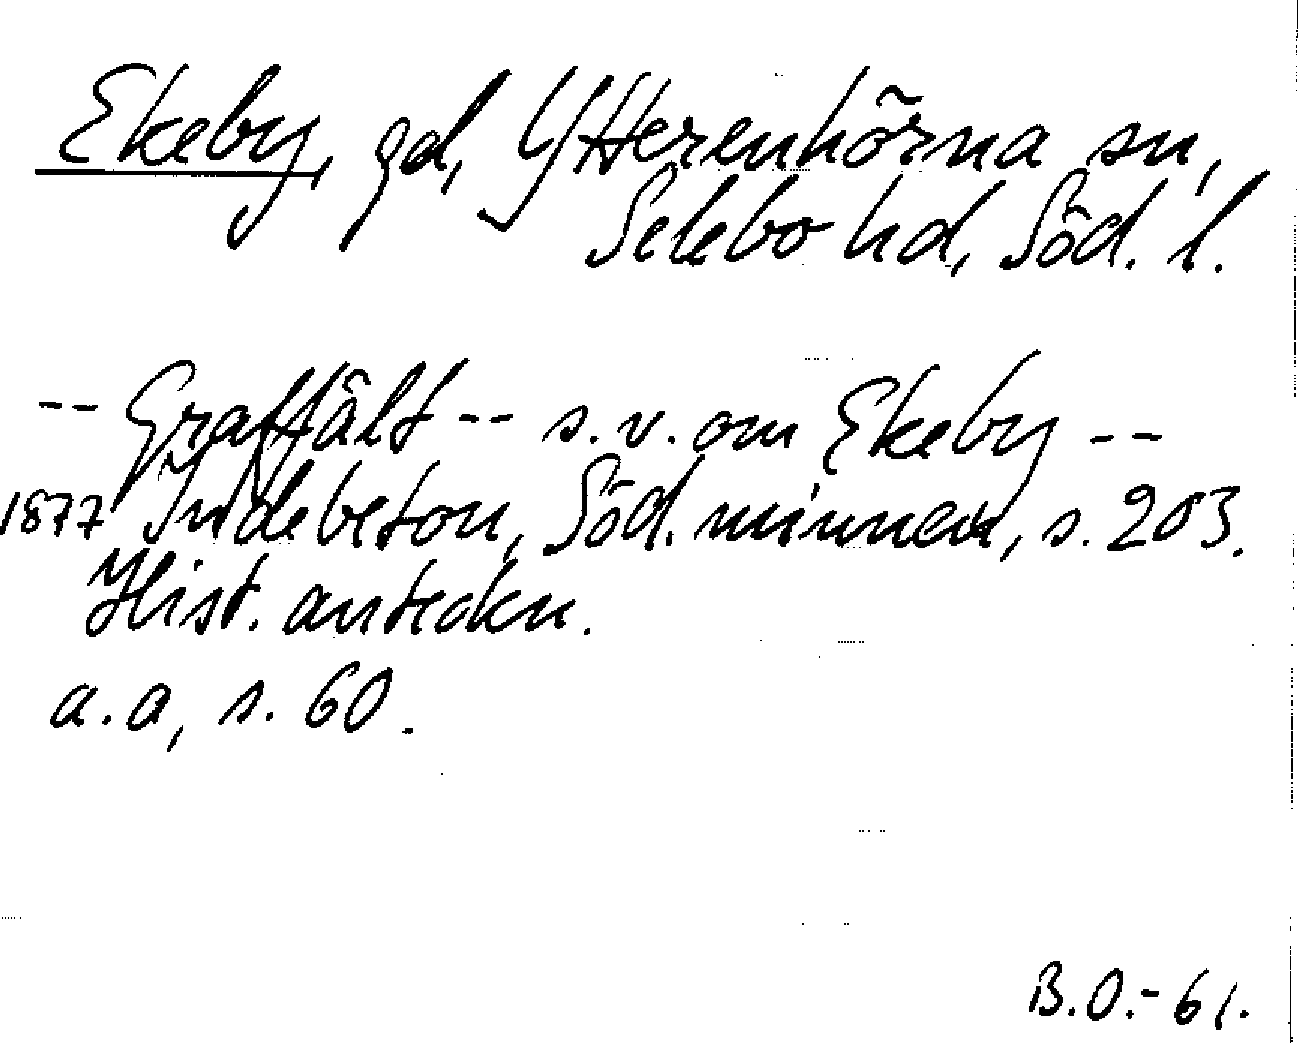 Ekeby, gd, Ytterenhörna sn,
Selebo hd, Söd. l.
-- Graffält -- s.v. om Ekeby --
1877 Indebetou, Söd. minnen, s. 203.
Hist. anteckn.
a.a, s. 60.
B.O.- 61.